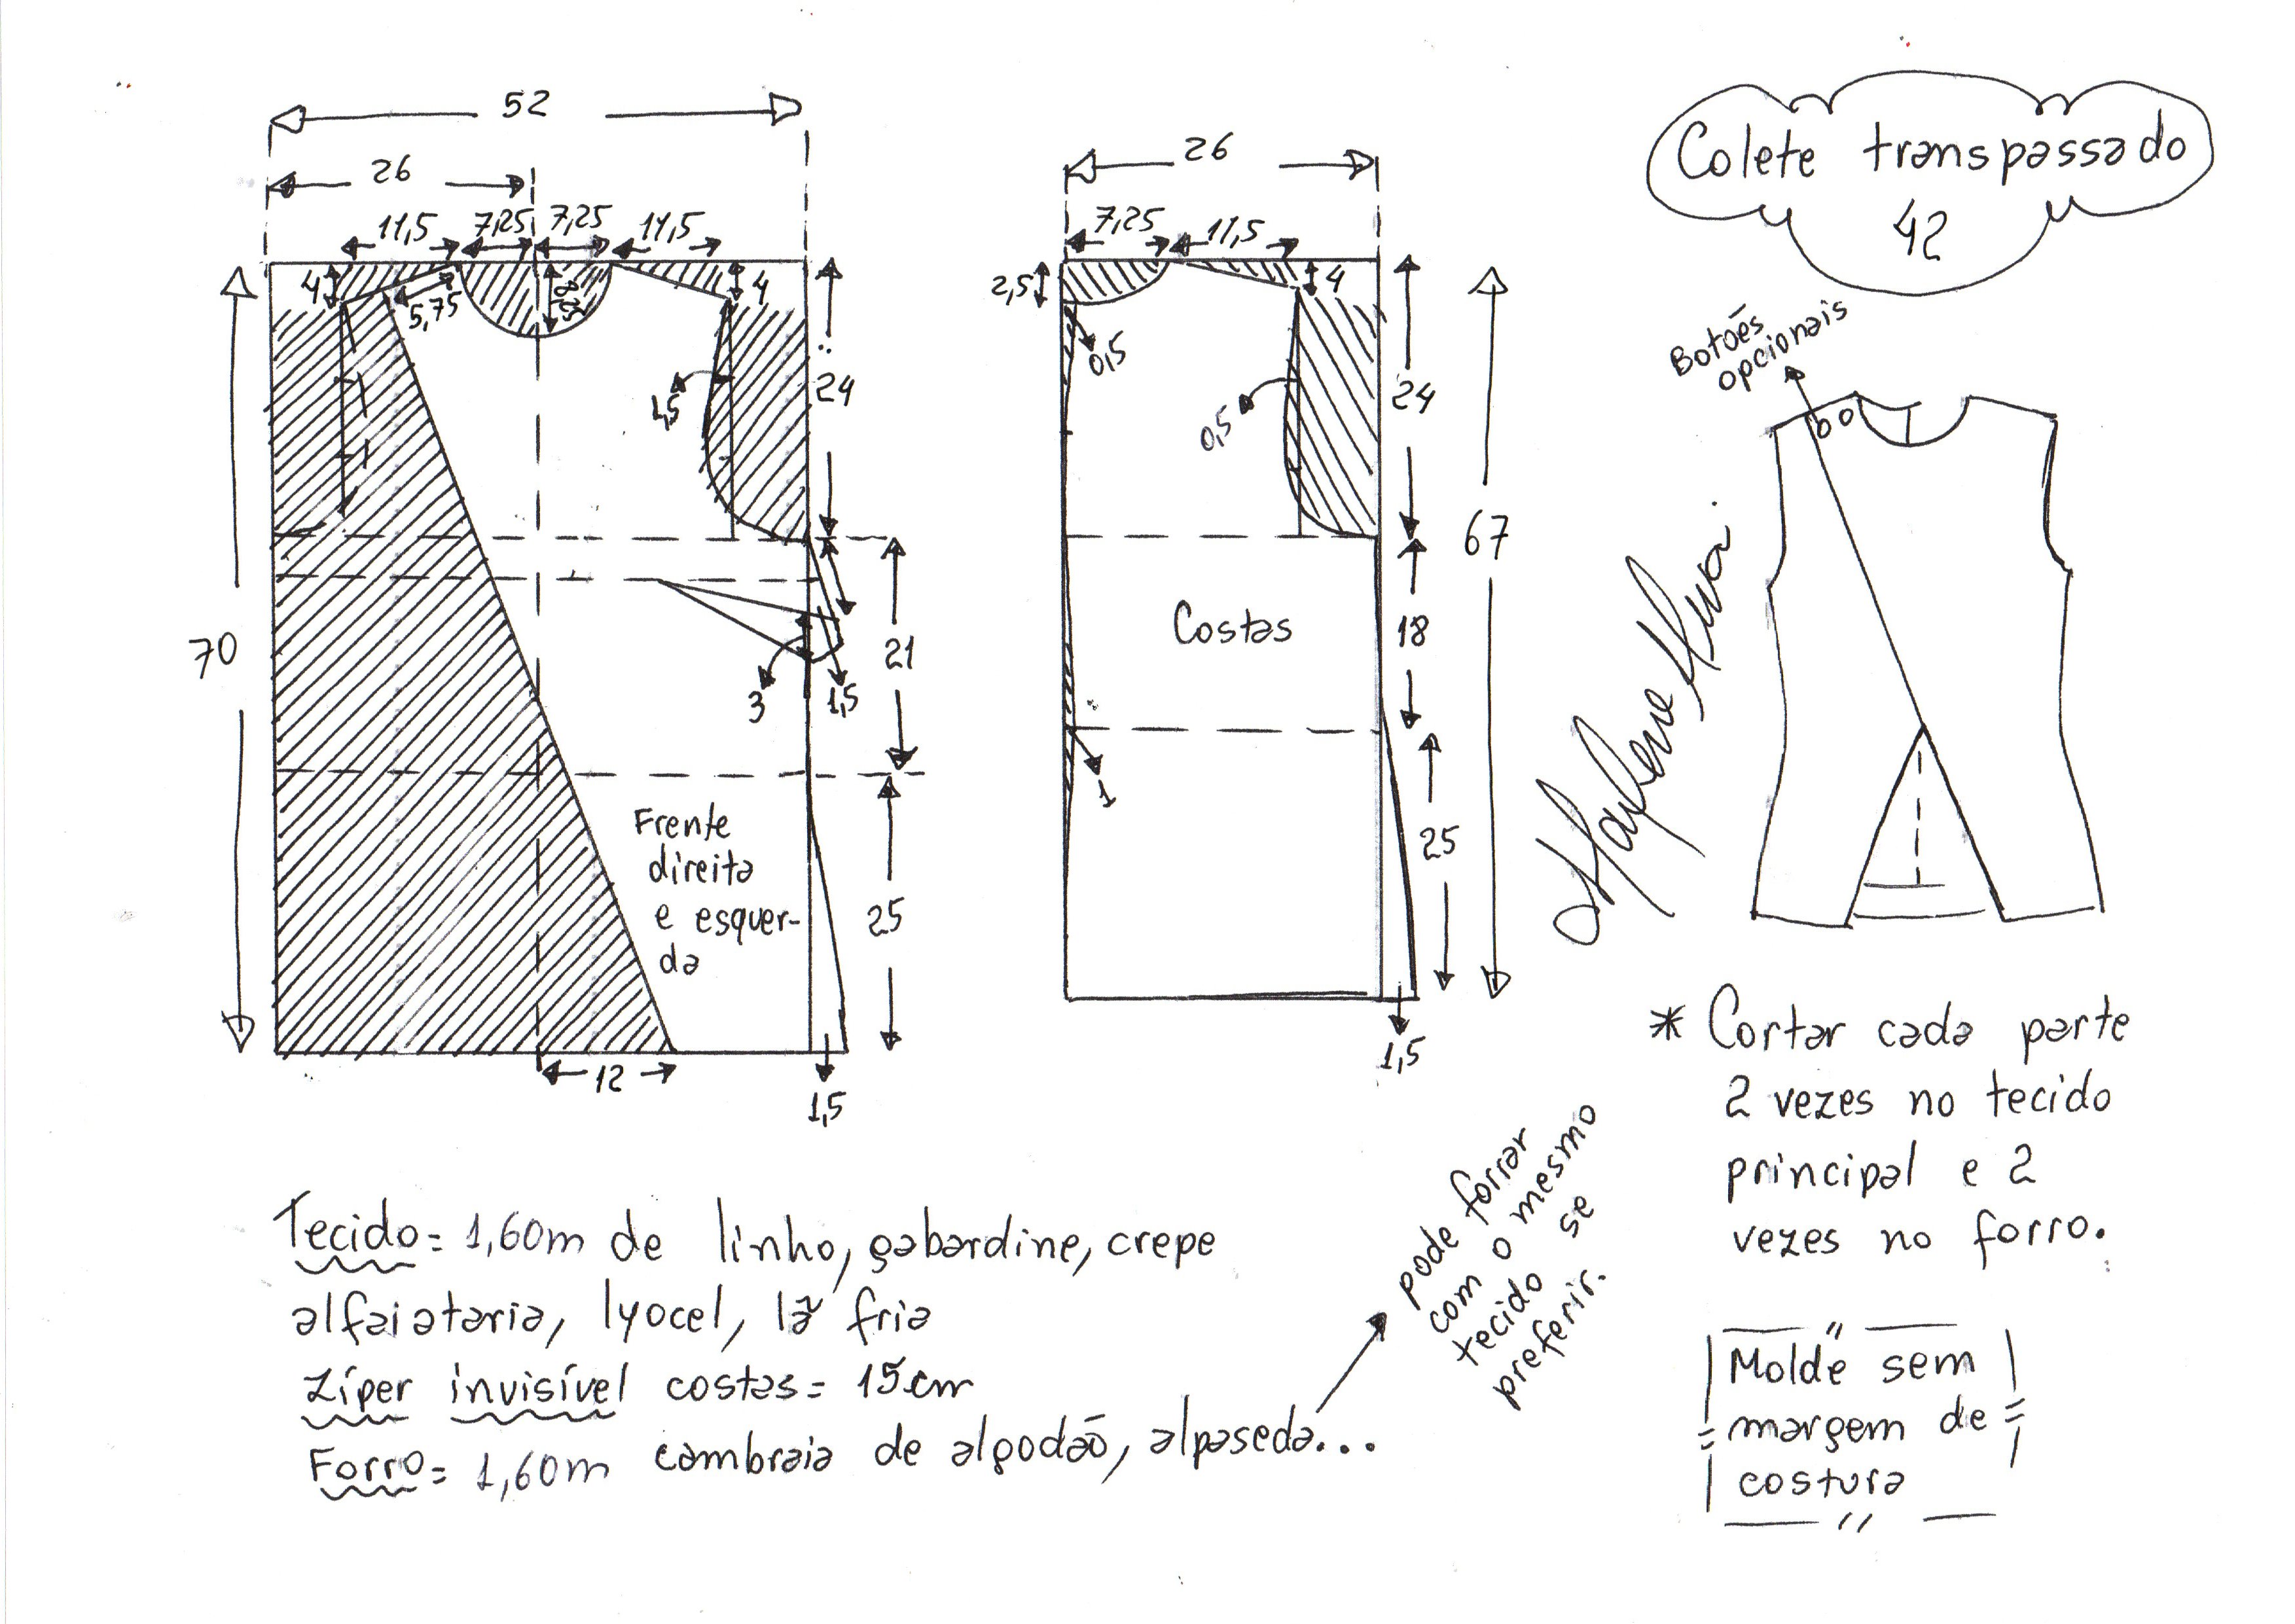 52
26
11,5 7,25 7,25 11,5
4
5,75
4
1,5
24
70
21
3
1,5
Frente
direita
e esquer-
da
25
12
1,5
26
7,25 11,5
2,5
4
0,5
0,5
24
67
Costas
18
1
25
1,5
Colete transpassado
42
Botões
opcionais
* Cortar cada parte
2 vezes no tecido
principal e 2
vezes no forro.
Molde sem
margem de
costura
Tecido = 1,60m de linho, gabardine, crepe
alfaiataria, lyocel, lã fria
Zíper invisível costas = 15cm
Forro = 1,60m cambraia de algodão, alpaseda...
pode forrar
com o mesmo
tecido se
preferir.